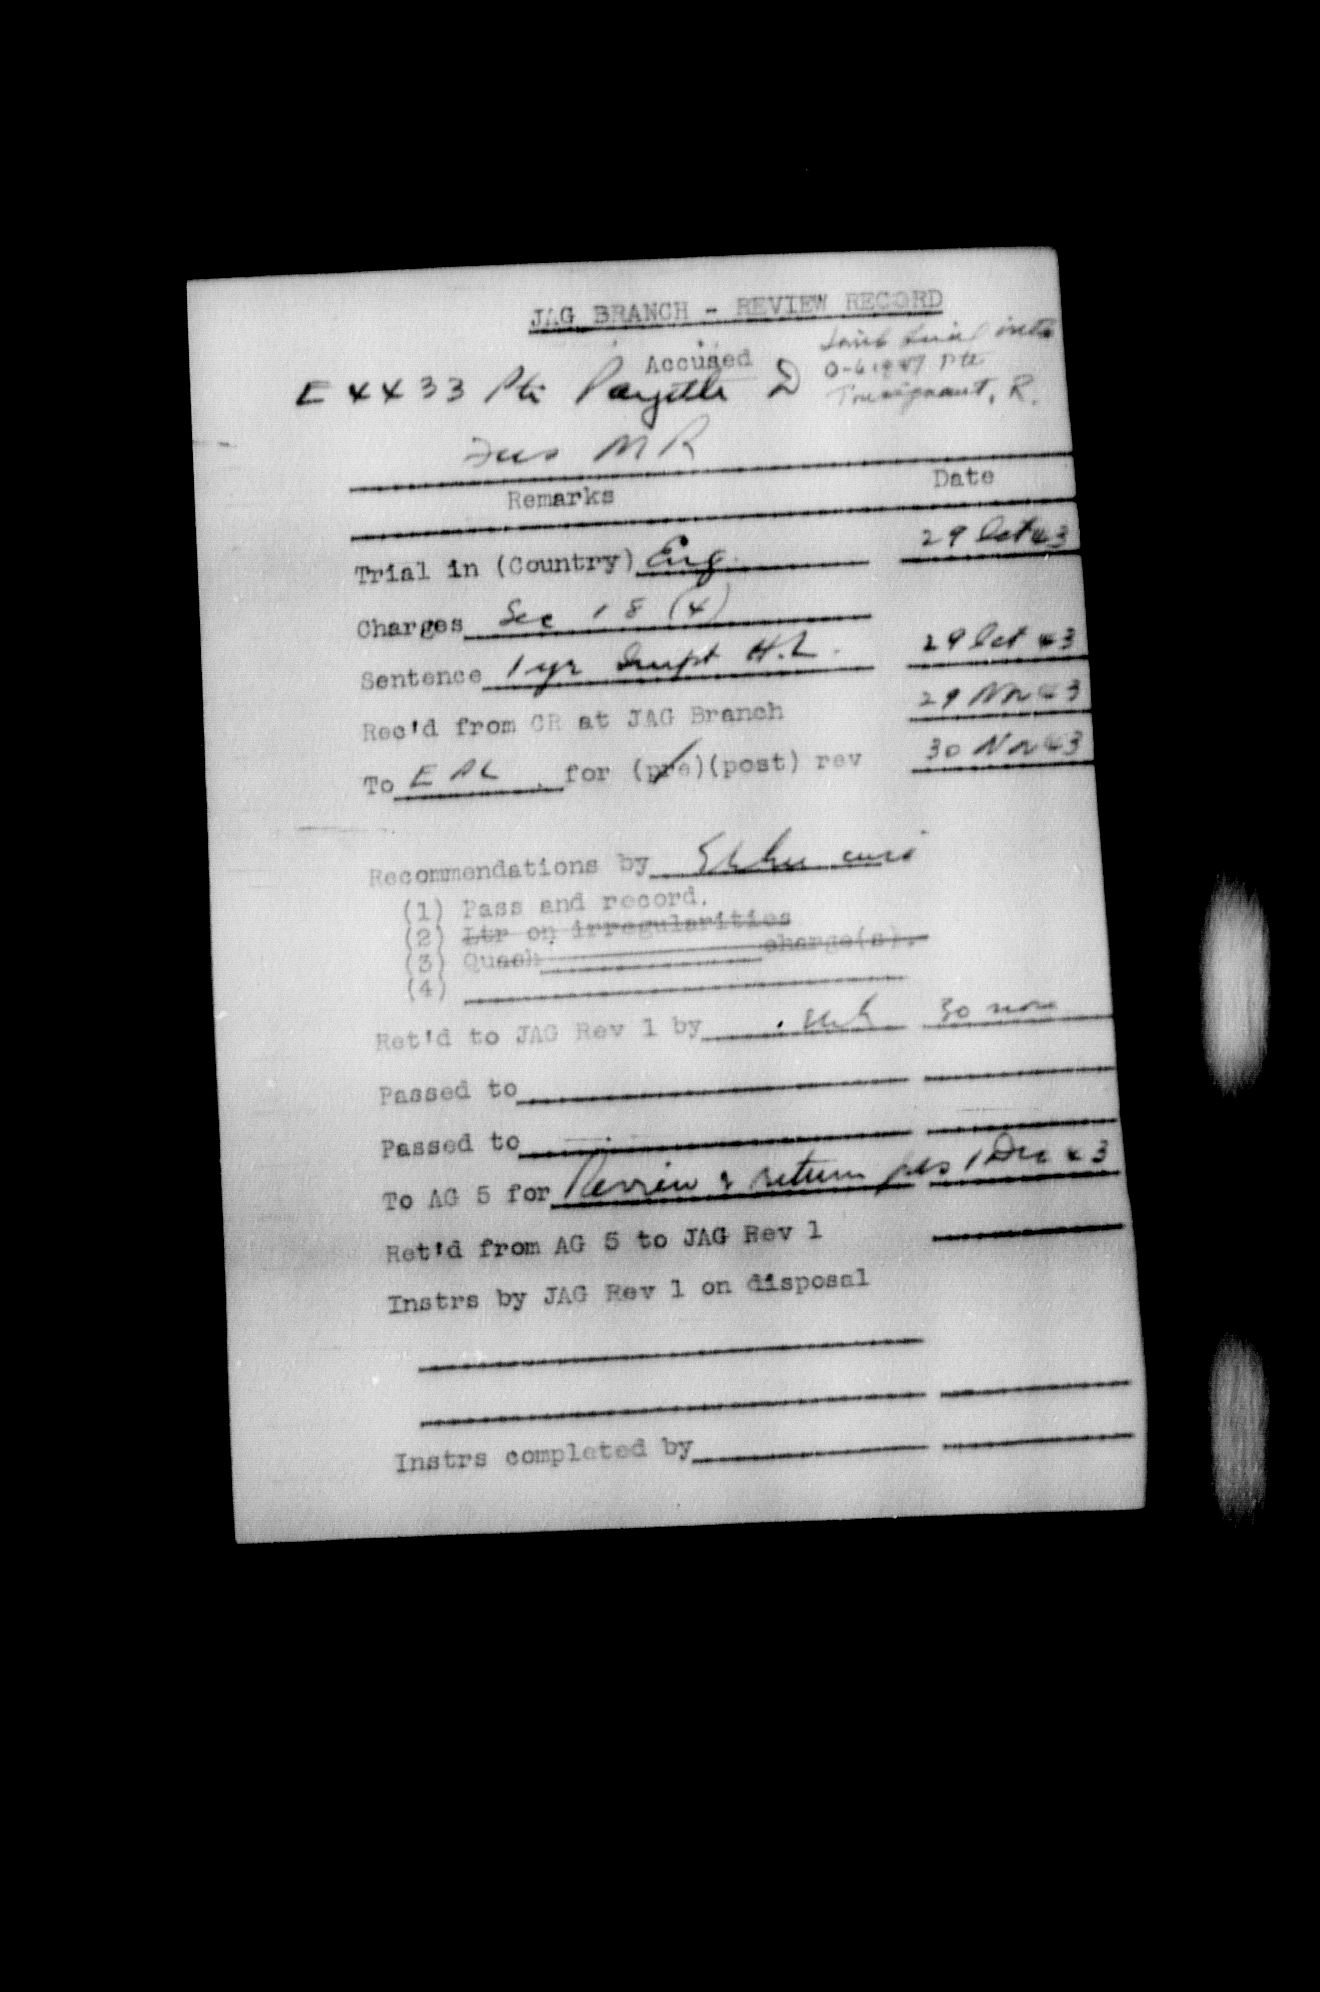 JAG BRANCH - REVIEW RECORD
Accused
Joint trial with
E 4433 Pte Payette D
Pte
R.
Fus M R
Remarks Date
Trial in (Country) Eng. 29 Oct 43
Charges Sec 18 (4)
Sentence 1 yr Impt H.L. 29 Oct 43
Rec'd from CR at JAG Branch 29 Nov 43
To for (pre)(post) rev 30 Nov 43
Recommendations by
(1) Pass and record.
(2) Ltr on irregularities
(3) Quash charge(s).
(4)
Ret'd to JAG Rev 1 by 30 Nov
Passed to
Passed to
To AG 5 for Review & return pls 1 Dec 43
Ret'd from AG 5 to JAG Rev 1
Instrs by JAG Rev 1 on disposal
Instrs completed by